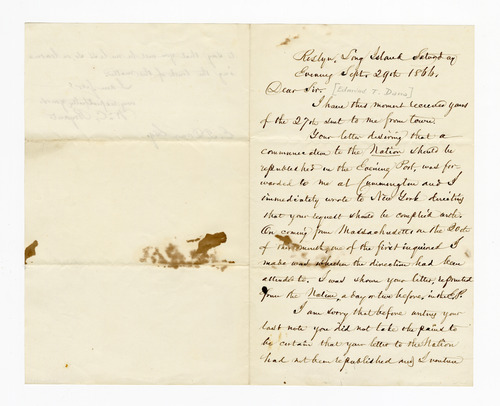 Roslyn, Long Island Saturday
Evening Sept. 29th 1866.
Dear Sir. [Edmund F. Dunn]
I have this moment received yours
of the 27th sent to me from town.
Your letter desiring that a
communication to the Nation should be
republished in the Evening Post, was for-
warded to me at Cummington and I
immediately wrote to New York directing
that your request should be complied with.
On coming from Massachusetts on the 20th
of this month, one of the first inquiries I
made was whether the direction had been
attended to. I was shown your letter, reprinted
from the Nation, a day or two before, in the E. P.
I am sorry that before writing your
last note you did not take the pains to
be certain that your letter to the Nation
had not been republished and I venture